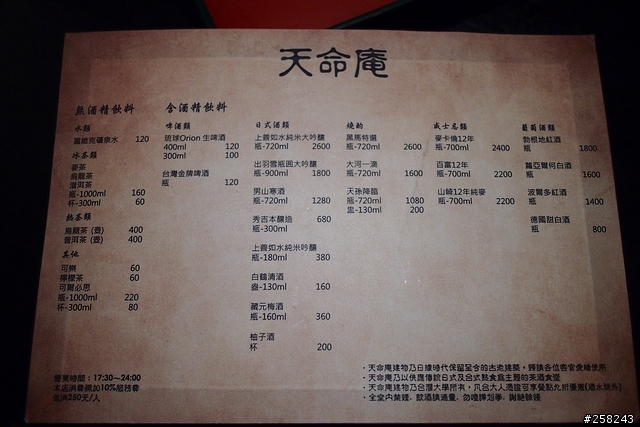 天命庵
無酒精飲料
水類
富維克礦泉水 120
冰茶類
麥茶
烏龍茶
普洱茶
瓶-1000ml 160
杯-300ml 60
熱茶類
烏龍茶 (壺) 400
普洱茶 (壺) 400
其他
可樂 60
檸檬茶 60
可爾必思
瓶-1000ml 220
杯-300ml 80
含酒精飲料
啤酒類
琉球Orion 生啤酒
400ml 120
300ml 100
台灣金牌啤酒
瓶 120
日式酒類
上善如水純米大吟釀
瓶-720ml 2600
出羽雪瓶囲大吟釀
瓶-900ml 1800
男山寒酒
瓶-720ml 1280
秀吉本釀造 680
瓶-300ml
上善如水純米吟釀
瓶-180ml 380
白鶴清酒
壺-130ml 160
藏元梅酒
瓶-160ml 360
柚子酒
杯 200
燒酌
黑馬特選
瓶-720ml 2600
大河一滴
瓶-720ml 1600
天孫降臨
瓶-720ml 1080
盅-130ml 200
威士忌類
麥卡倫12年
瓶-700ml 2400
百富12年
瓶-700ml 2200
山崎12年純麥
瓶-700ml 2200
葡萄酒類
勃根地紅酒
瓶 1800
蘿亞爾河白酒
瓶 1600
波爾多紅酒
瓶 1400
德國甜白酒
瓶 800
營業時間：17:30~24:00
本店消費須加10%服務費
低消250元/人
・天命庵建物乃日據時代保留至今的古老建築，歸請各位客官愛惜使用
・天命庵乃以供應傳統日式及台式熱食為主題的茶酒食堂
・天命庵建物乃台灣大學所有，凡台大人憑證可享餐點九折優惠(酒水除外)
・全室內禁煙、飲酒請適量，勿喧譁划拳，謝絕外食
#258243